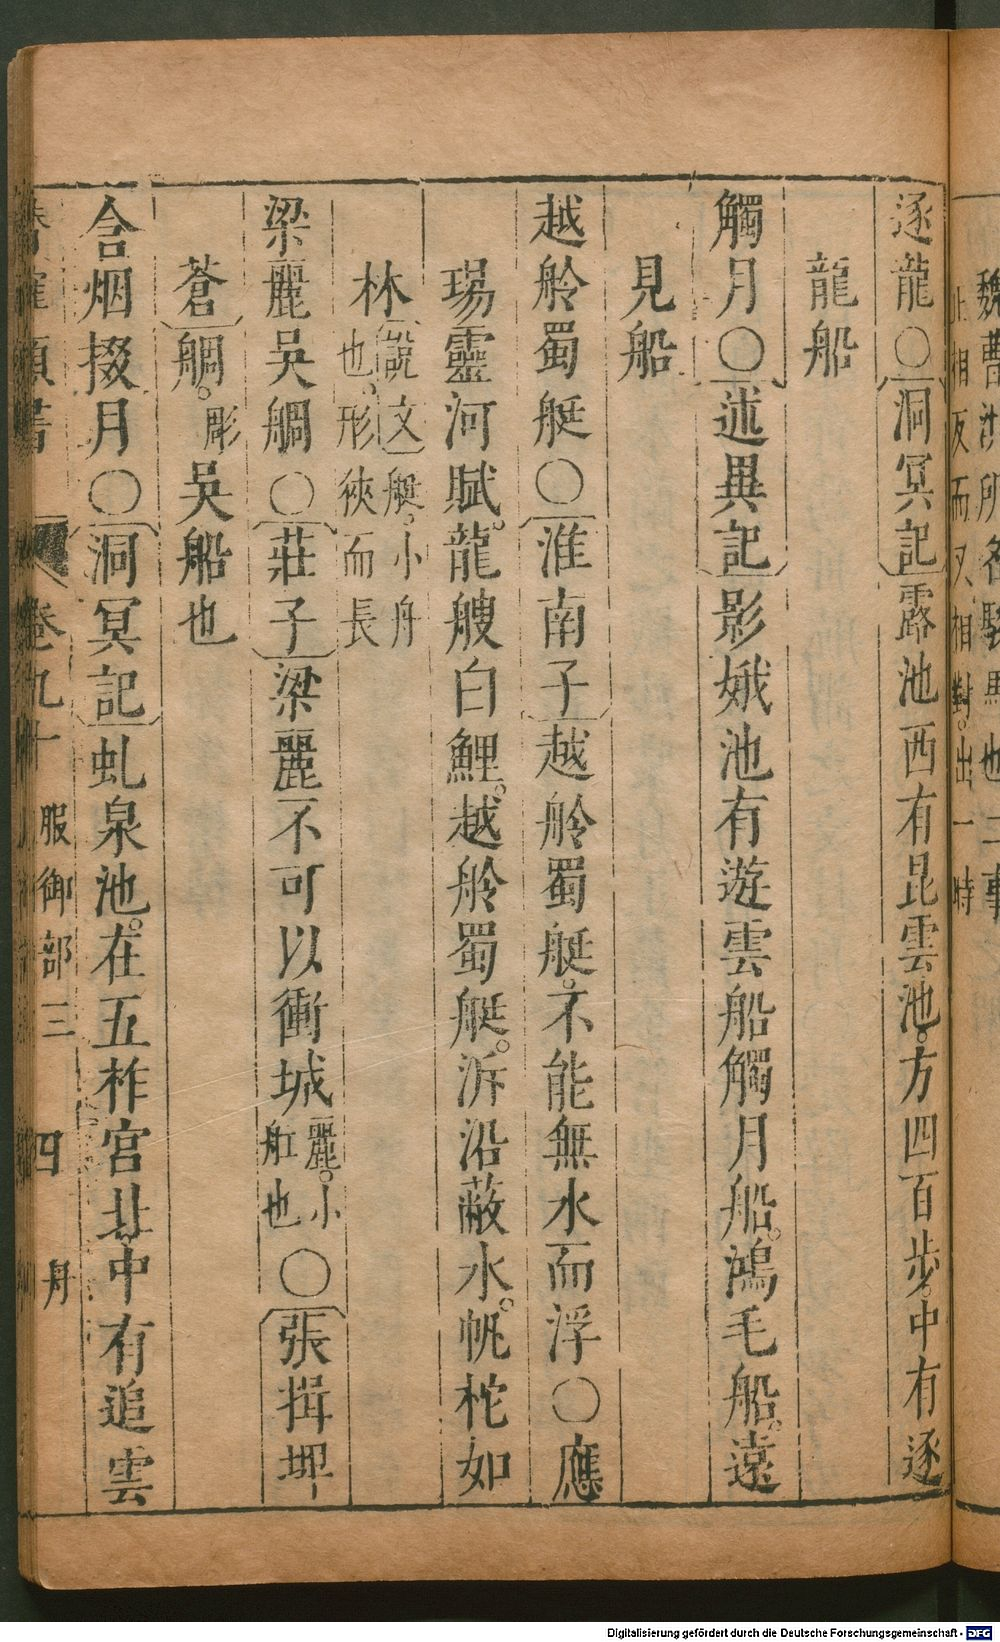 逐龍○洞冥記露池西有昆雲池。方四百步。中有逐
龍船
觸月○述異記影娥池有遊雲船觸月船。鴻毛船。遠
見船
越舲蜀艇○淮南子越舲蜀艇。不能無水而浮○應
瑒靈河賦。龍艘白鯉。越舲蜀艇。泝沿蔽水。帆柁如
林說文艇。小舟也。形狹而長
梁麗吳艒○莊子梁麗不可以衝城麗。小舡也○張揖埤
蒼艒。彫吳船也
含烟掇月○洞冥記虬泉池。在五柞宮北。中有追雲
類書 卷九十 服御部三 四 舟
魏曹洪所名駿馬也二事
相反而又相對。出一時
Digitalisierung gefördert durch die Deutsche Forschungsgemeinschaft - DFG